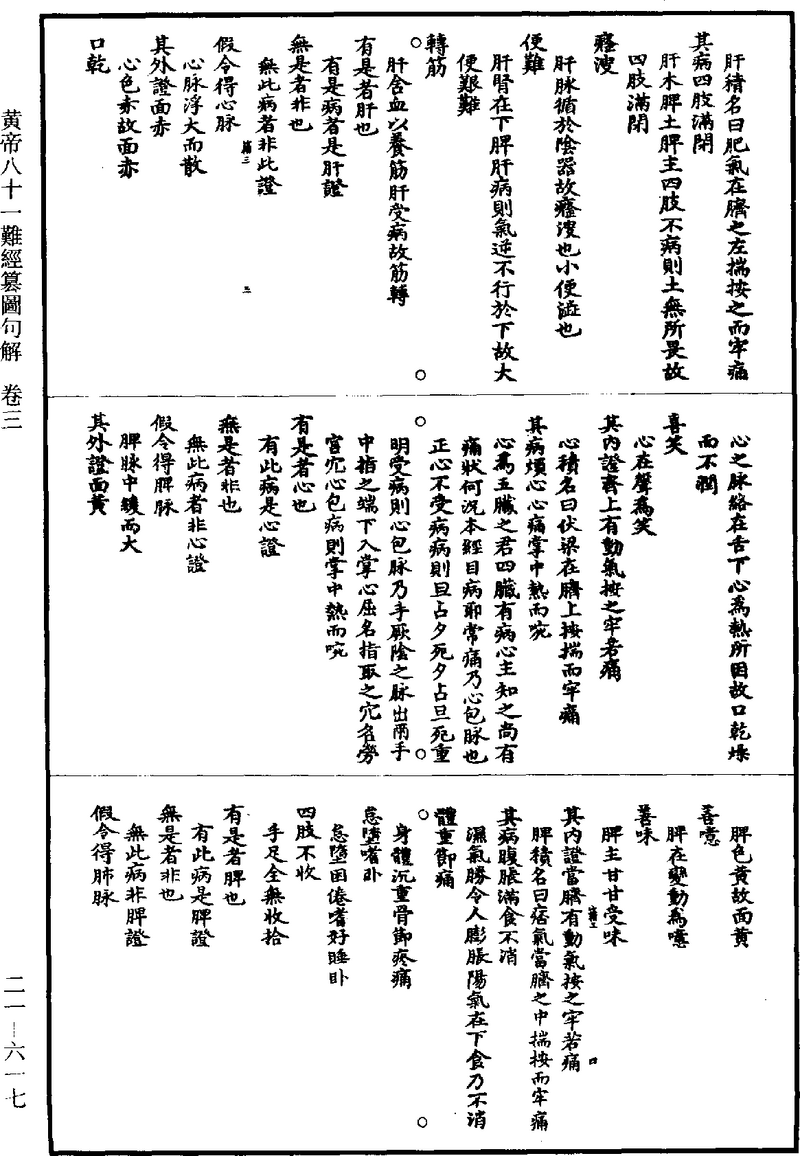 肝積名曰肥氣在臍之左揣按之而牢痛
其病四肢滿閉
肝木脾土脾主四肢不病則土無所畏故
四肢滿閉
癃溲
肝脉循於陰器故癃溲也小便澁也
便難
肝腎在下脾肝病則氣逆不行於下故大
便艱難
轉筋
肝舍血以養筋肝受病故筋轉
有是者肝也
有是病者是肝證
無是者非也
無此病者非此證
假令得心脉
心脉浮大而散
其外證面赤
心色赤故面赤
口乾
心之脉絡在舌下心爲熱所困故口乾燥
而不潤
喜笑
心在聲爲笑
其内證齊上有動氣按之牢若痛
心積名曰伏梁在臍上按揣而牢痛
其病煩心心痛掌中熱而啘
心爲五臟之君四臟有病心主知之尚有
痛狀何況本經自病耶常痛乃心包脉也
正心不受病病則旦占夕死夕占旦死重
明受病則心包脉乃手厥陰之脉出兩手
中指之端下入掌心屈名指取之穴名勞
宮穴心包病則掌中熱而啘
有是者心也
有此病是心證
無是者非也
無此病者非心證
假令得脾脉
脾脉中緩而大
其外證面黄
脾色黄故面黄
善噫
脾在變動爲噫
善味
脾主甘甘受味
其内證當臍有動氣按之牢若痛
脾積名曰痞氣當臍之中揣按而牢痛
其病腹脹滿食不消
濕氣勝令人膨脹陽氣在下食乃不消
體重節痛
身體沉重骨節疼痛
怠墮嗜卧
怠墮困倦嗜好睡卧
四肢不收
手足全無收拾
有是者脾也
有此病是脾證
無是者非也
無此病非脾證
假令得肺脉
黄帝八十一難經纂圖句解　卷三
二一—六一七